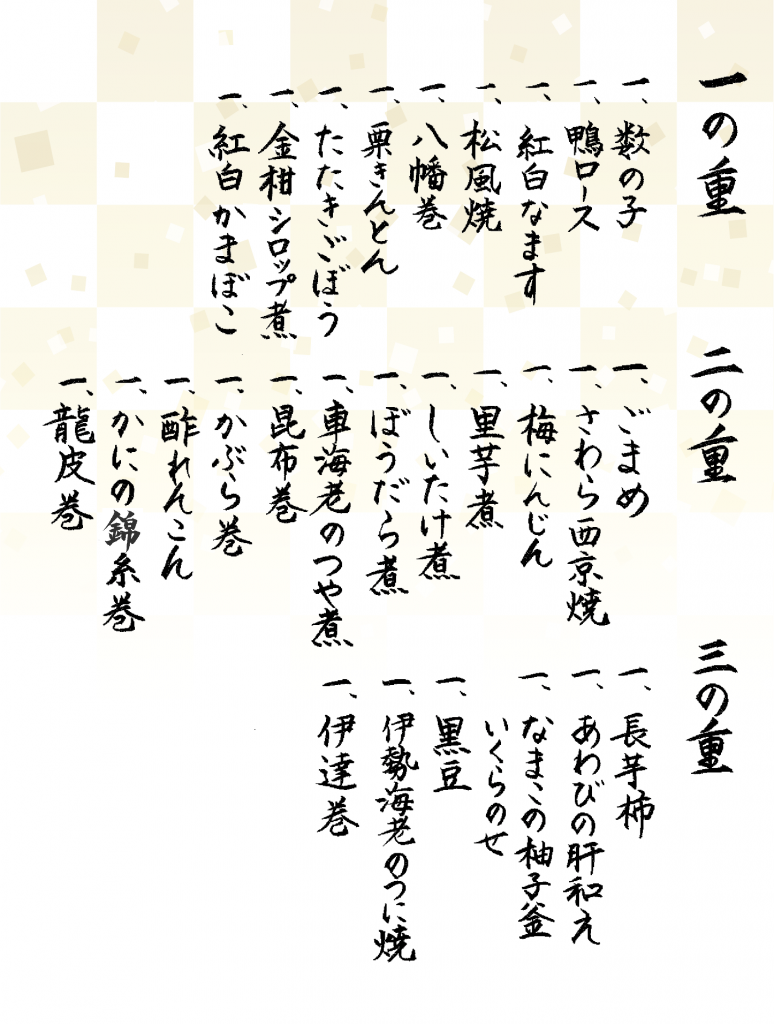 一の重
一、数の子
一、鴨ロース
一、紅白なます
一、松風焼
一、八幡巻
一、栗きんとん
一、たたきごぼう
一、金柑シロップ煮
一、紅白かまぼこ
二の重
一、ごまめ
一、さわら西京焼
一、梅にんじん
一、里芋煮
一、しいたけ煮
一、ぼうだら煮
一、車海老のつや煮
一、昆布巻
一、かぶら巻
一、酢れんこん
一、かにの錦糸巻
一、龍皮巻
三の重
一、長芋柿
一、あわびの肝和え
一、なまこの柚子釜
いくらのせ
一、黒豆
一、伊勢海老のうに焼
一、伊達巻